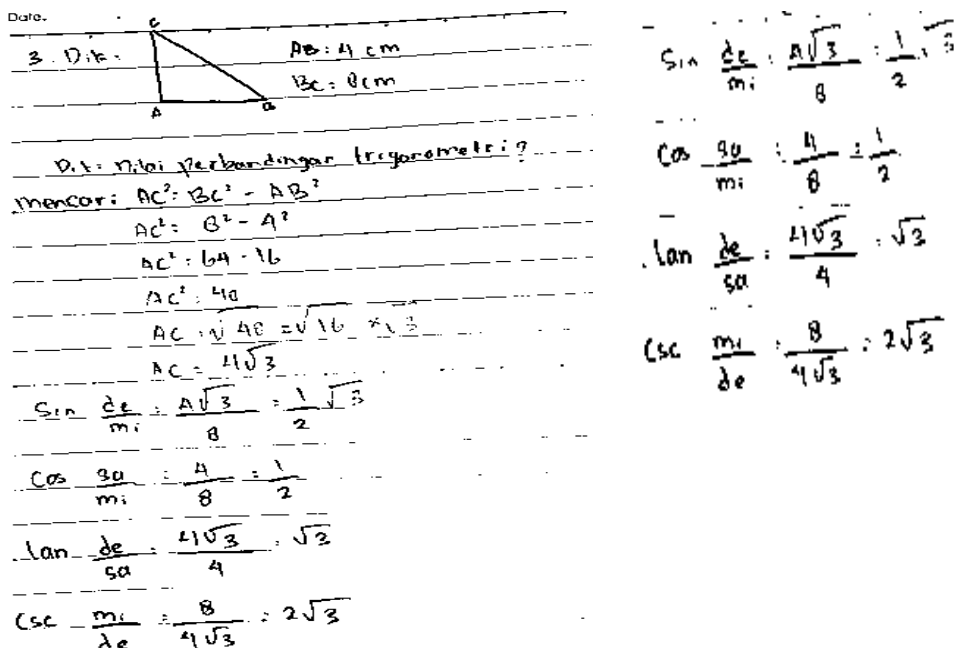 Date.
3. Dik:
C
A
B
AB: 4 cm
BC: 8 cm
Dit: nilai perbandingan trigonometri?
mencari: AC²: BC² - AB²
AC²: 8² - 4²
AC²: 64 - 16
AC²: 48
AC: √48 = √16 × √3
AC = 4√3
Sin de/mi : 4√3/8 : 1/2 √3
Cos sa/mi : 4/8 = 1/2
tan de/sa : 4√3/4 : √3
Csc mi/de : 8/4√3 : 2√3
Sin de/mi : 4√3/8 : 1/2 . √3
Cos sa/mi : 4/8 = 1/2
. tan de/sa : 4√3/4 : √3
Csc mi/de : 8/4√3 : 2√3